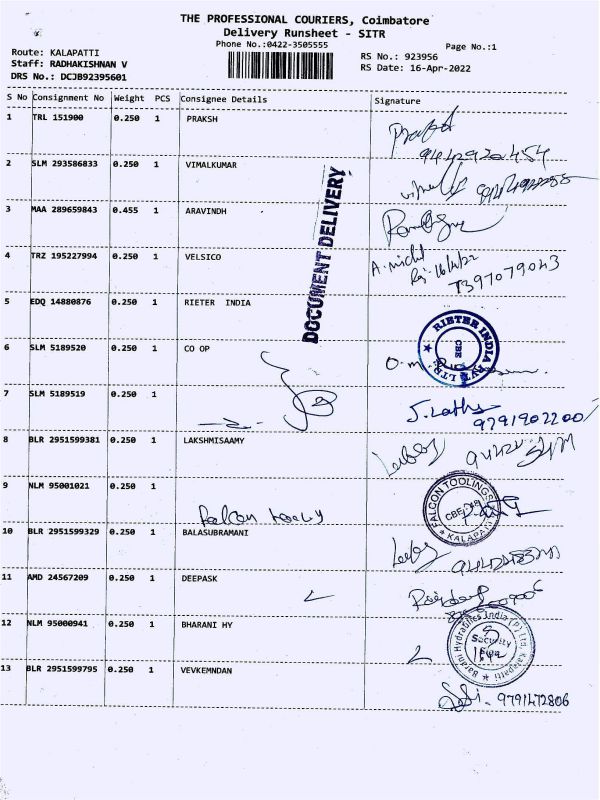 THE PROFESSIONAL COURIERS, Coimbatore
Delivery Runsheet - SITR
Phone No.:0422-3505555
Page No.:1
Route: KALAPATTI
RS No.: 923956
Staff: RADHAKISHNAN V
RS Date: 16-Apr-2022
DRS No.: DCJB92395601
S No Consignment No Weight PCS Consignee Details Signature
1 TRL 151900 0.250 1 PRAKSH
2 SLM 293586833 0.250 1 VIMALKUMAR
3 MAA 289659843 0.455 1 ARAVINDH
DOCUMENT DELIVERY
4 TRZ 195227994 0.250 1 VELSICO
16/4/22
7397079043
5 EDQ 14880876 0.250 1 RIETER INDIA
RIETER INDIA PVT. LTD. CBE
6 SLM 5189520 0.250 1 CO OP
7 SLM 5189519 0.250 1
J. Latha
9791902200/
8 BLR 2951599381 0.250 1 LAKSHMISAAMY
9 NLM 95001021 0.250 1
FALCON TOOLINGS KALAPATTI
10 BLR 2951599329 0.250 1 BALASUBRAMANI
11 AMD 24567209 0.250 1 DEEPASK
12 NLM 95000941 0.250 1 BHARANI HY
Barani Hydraulics India (P) Ltd, Kalapatti Security
13 BLR 2951599795 0.250 1 VEVKEMNDAN
9791472806